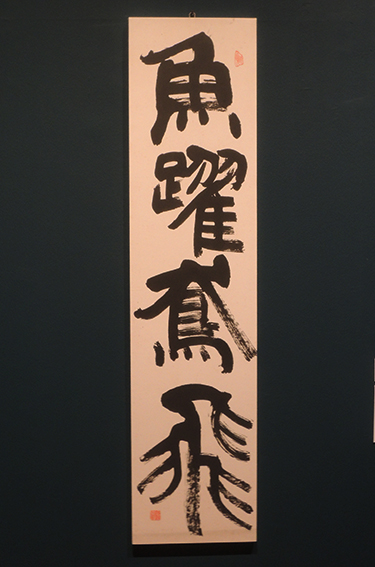 魚躍鳶飛